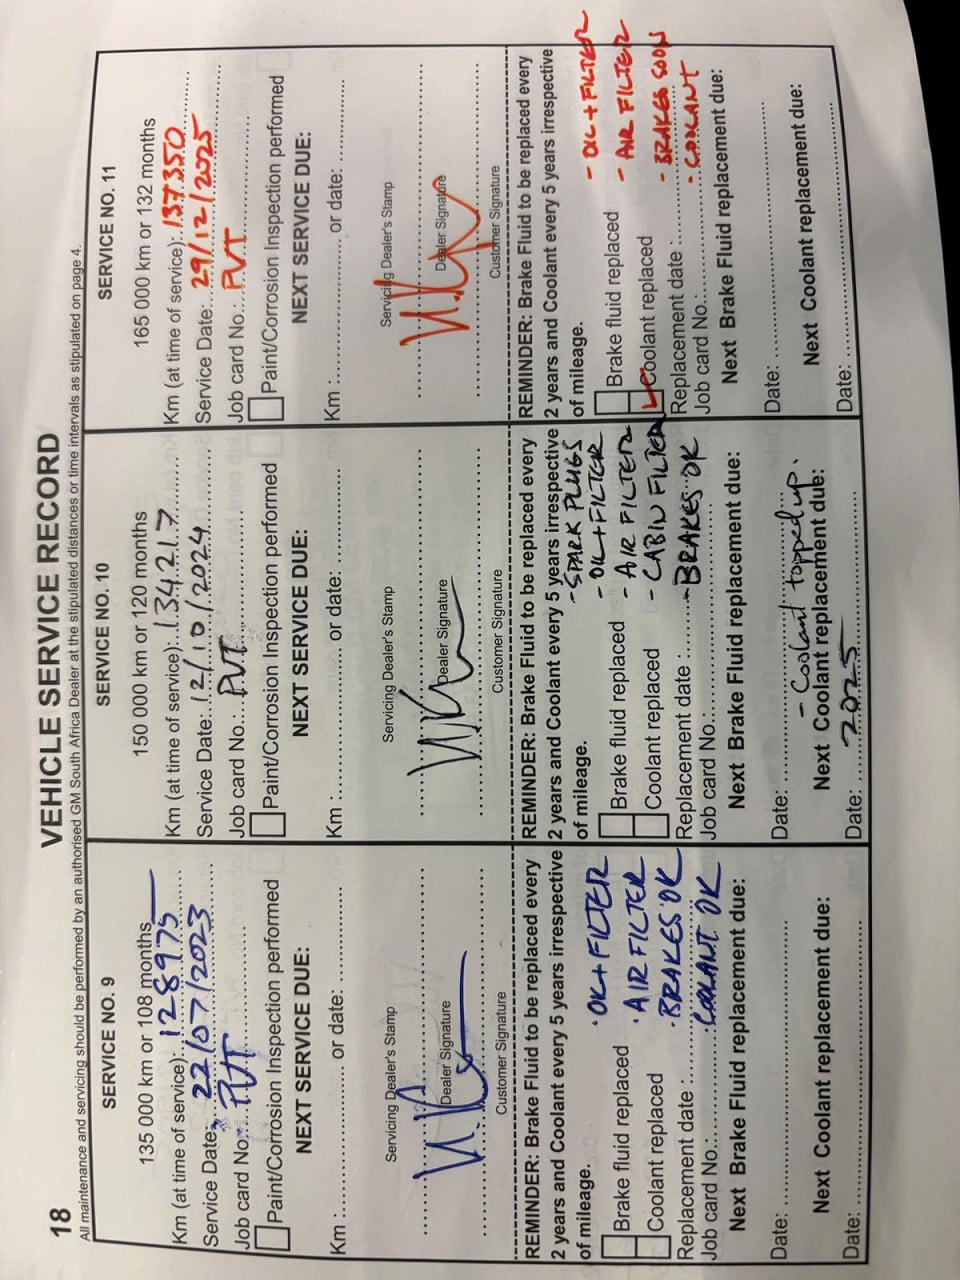 18
VEHICLE SERVICE RECORD
All maintenance and servicing should be performed by an authorised GM South Africa Dealer at the stipulated distances or time intervals as stipulated on page 4.
SERVICE NO. 9
135 000 km or 108 months
Km (at time of service): 128975
Service Date: 22/07/2023
Job card No.: PVT
Paint/Corrosion Inspection performed
NEXT SERVICE DUE:
Km : or date:
Servicing Dealer's Stamp
Dealer Signature
Customer Signature
REMINDER: Brake Fluid to be replaced every
2 years and Coolant every 5 years irrespective
of mileage.
· OIL + FILTER
Brake fluid replaced · AIR FILTER
Coolant replaced · BRAKES OK
Replacement date : · COOLANT OK
Job card No.:
Next Brake Fluid replacement due:
Date:
Next Coolant replacement due:
Date:
SERVICE NO. 10
150 000 km or 120 months
Km (at time of service): 134217
Service Date: 12/10/2024
Job card No.: PVT
Paint/Corrosion Inspection performed
NEXT SERVICE DUE:
Km : or date:
Servicing Dealer's Stamp
Dealer Signature
Customer Signature
REMINDER: Brake Fluid to be replaced every
2 years and Coolant every 5 years irrespective
of mileage. - SPARK PLUGS
- OIL + FILTER
Brake fluid replaced - AIR FILTER
Coolant replaced - CABIN FILTER
Replacement date : - BRAKES OK
Job card No.:
Next Brake Fluid replacement due:
Date:
- Coolant topped up.
Next Coolant replacement due:
Date: 2025
SERVICE NO. 11
165 000 km or 132 months
Km (at time of service): 137350
Service Date: 29/12/2025
Job card No.: PVT
Paint/Corrosion Inspection performed
NEXT SERVICE DUE:
Km : or date:
Servicing Dealer's Stamp
Dealer Signature
Customer Signature
REMINDER: Brake Fluid to be replaced every
2 years and Coolant every 5 years irrespective
of mileage. - OIL + FILTER
Brake fluid replaced - AIR FILTER
Coolant replaced - BRAKES SOON
Replacement date : - COOLANT
Job card No.:
Next Brake Fluid replacement due:
Date:
Next Coolant replacement due:
Date: